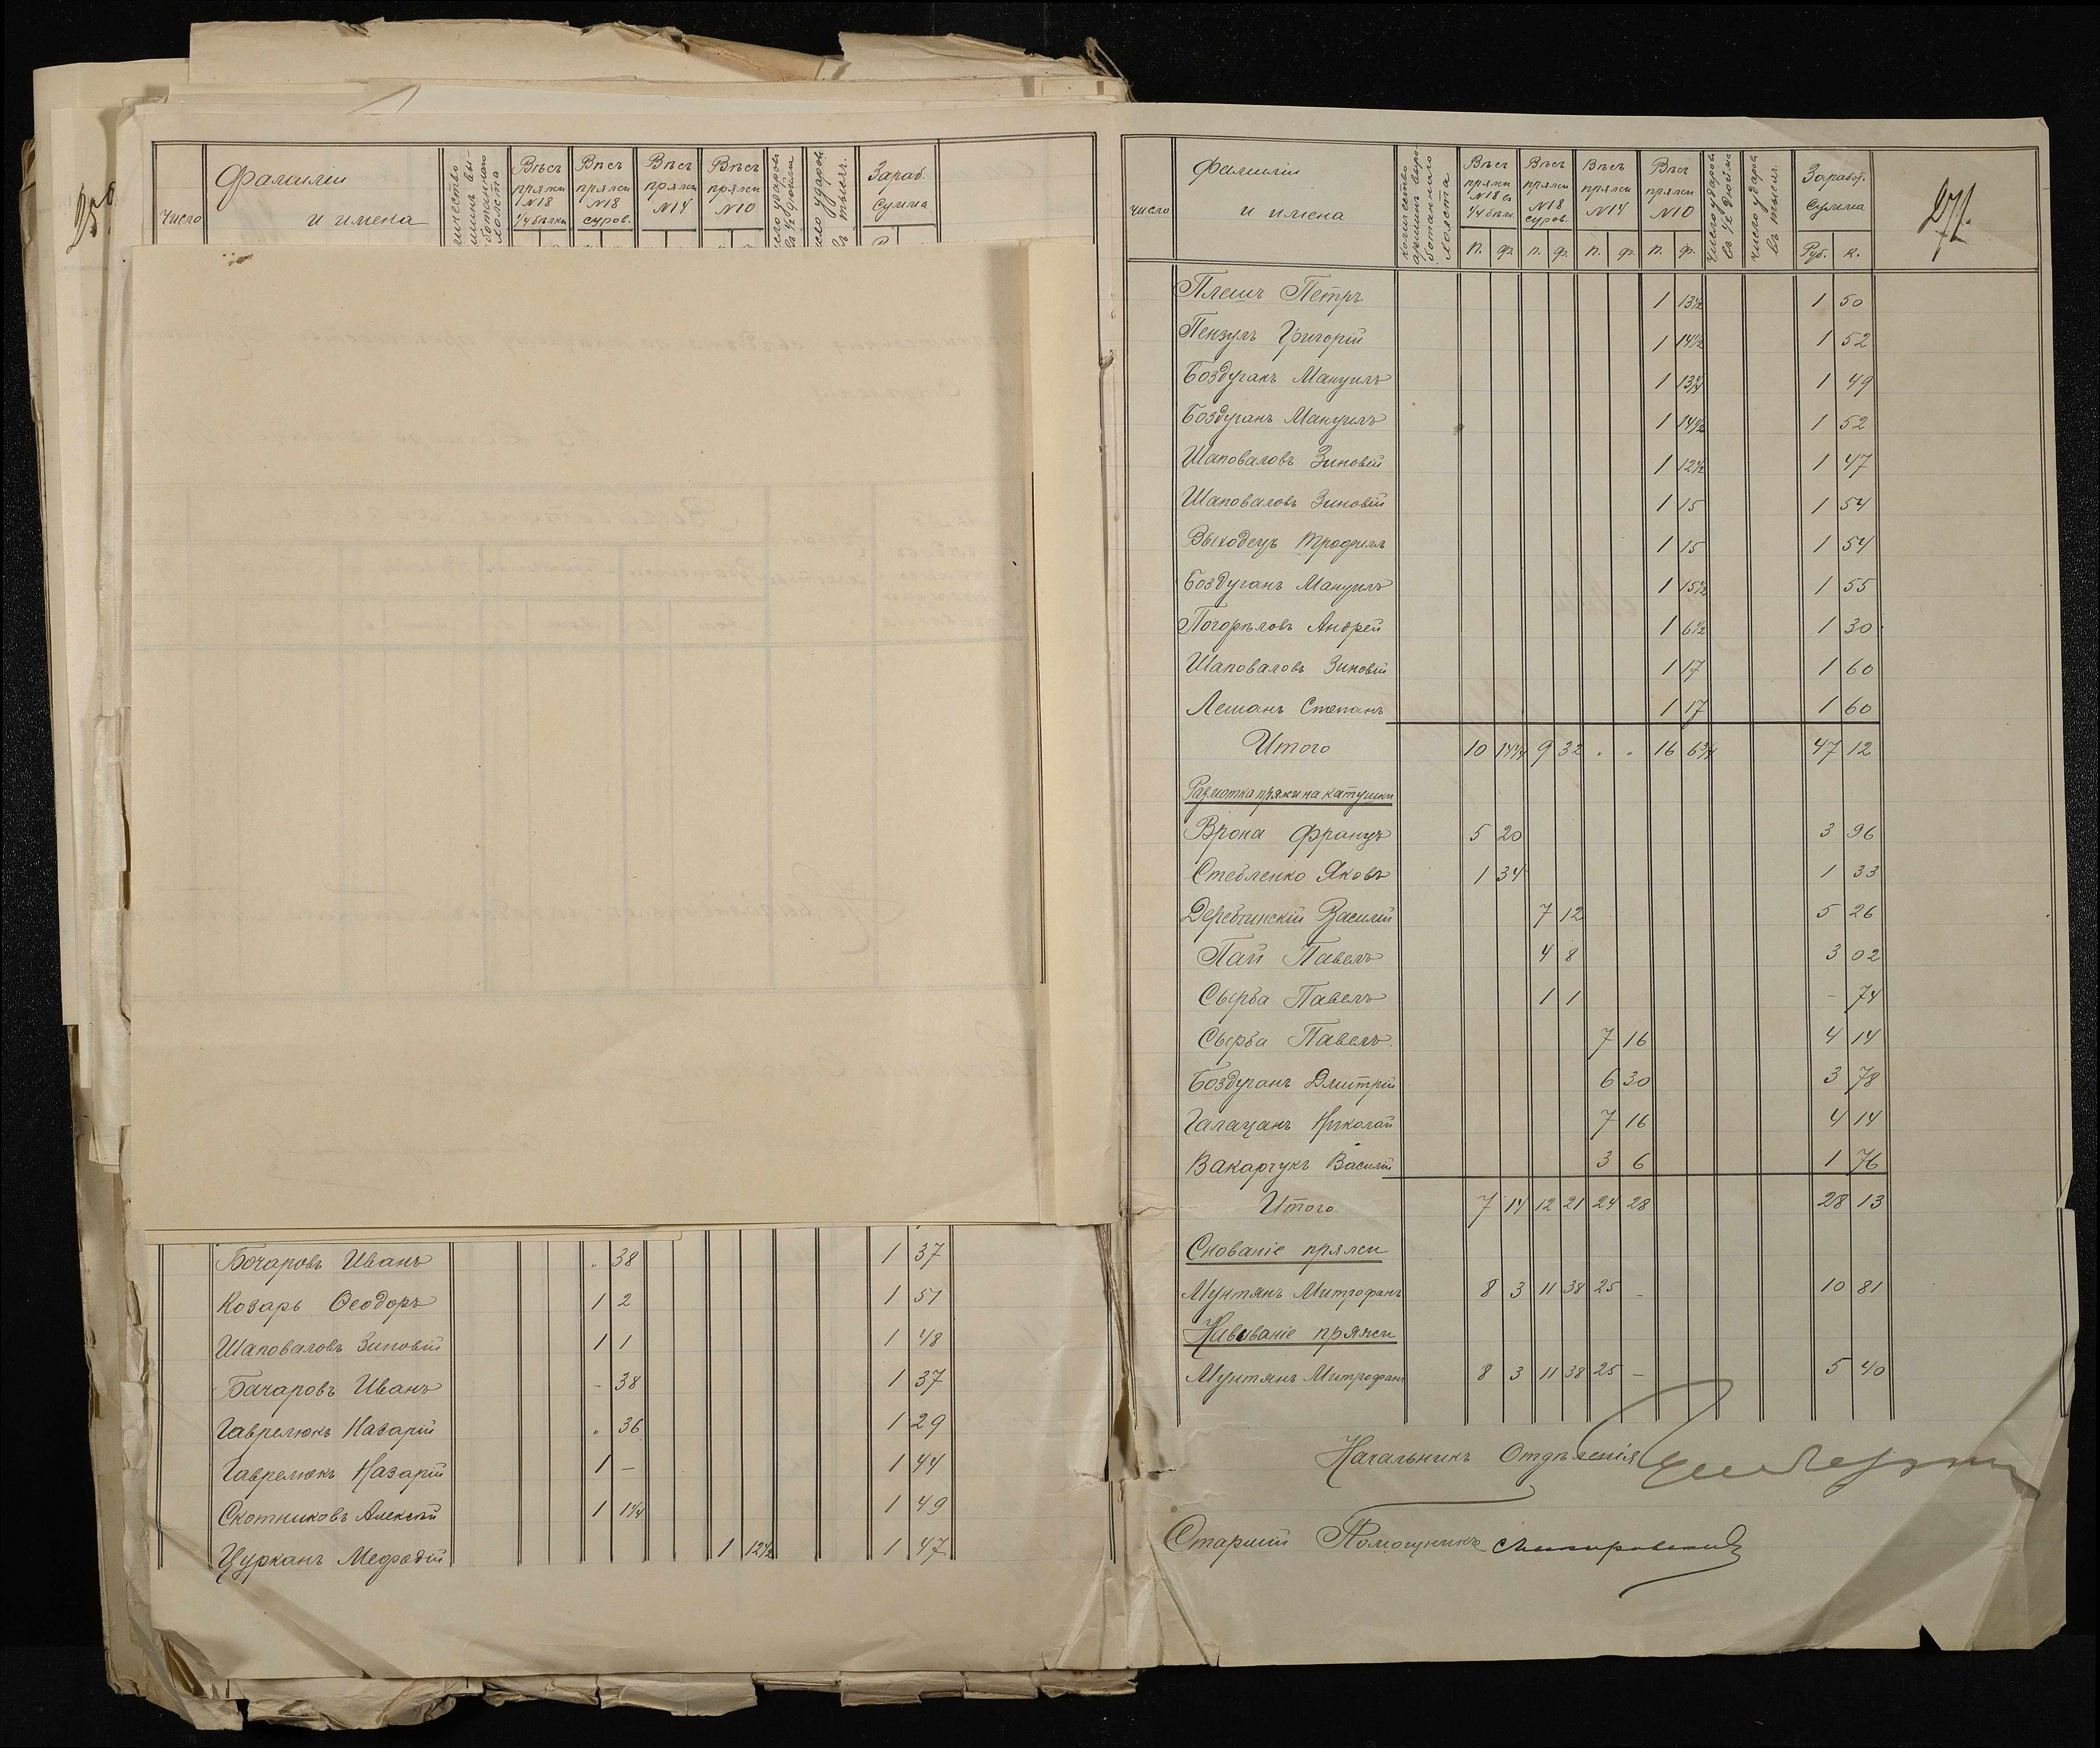 Число
Фамилии
и имена
Вѣсъ пряжи N18 1/4 бѣлки
Вѣсъ пряжи N18 суров.
Вѣсъ пряжи N14
Вѣсъ пряжи N10
Зараб. Сумма
Бочаровъ Иванъ " 38 1 37
Козарь Ѳеодоръ 1 2 1 51
Шаповаловъ Зиновій 1 1 1 48
Бачаровъ Иванъ - 38 1 37
Гаврелюкъ Назарій " 36 1 29
Гаврелюкъ Назарій 1 – 1 44
Скотниковъ Алексѣй 1 1 1/4 1 49
Цурканъ Мефодій 1 12 1/2 1 47
271.
Число
Фамиліи
и имена
Количество аршинъ выработаннаго холста
Вѣсъ пряжи N18 въ 1/4 бѣлк.
Вѣсъ пряжи N18 суров.
Вѣсъ пряжи N14
Вѣсъ пряжи N10
Число ударовъ въ 1/2 дюйма
Число ударов. въ тысяч.
Заработ. Сумма
п. ф. п. ф. п. ф. п. ф. Руб. к.
Плешъ Петръ 1 13 1/2 1 50
Пензулъ Григорій 1 14 1/2 1 52
Боздуганъ Мануилъ 1 13 1/4 1 49
Боздуганъ Мануилъ 1 14 1/2 1 52
Шаповаловъ Зиновій 1 12 1/2 1 47
Шаповаловъ Зиновій 1 15 1 54
Выходецъ Трофимъ 1 15 1 54
Боздуганъ Мануилъ 1 15 1/2 1 55
Погорѣловъ Андрей 1 6 1/2 1 30
Шаповаловъ Зиновій 1 17 1 60
Лешанъ Степанъ 1 17 1 60
Итого 10 14 1/4 9 32 " " 16 6 3/4 47 12
Размотка пряжи на катушки
Врона Францъ 5 20 3 96
Стебленко Яковъ 1 34 1 33
Деребчинскій Василій 7 12 5 26
Пай Павелъ 4 8 3 02
Сырба Павелъ 1 1 – 74
Сырба Павелъ 7 16 4 14
Боздуганъ Дмитрій 6 30 3 78
Галацанъ Николай 7 16 4 14
Вакарчукъ Василій 3 6 1 76
Итого 7 14 12 21 24 28 28 13
Снованіе пряжи
Мунтянъ Митрофанъ 8 3 11 38 25 – 10 81
Нивываніе пряжи
Мунтянъ Митрофанъ 8 3 11 38 25 – 5 40
Начальникъ Отдѣленія
Старшій Помощникъ